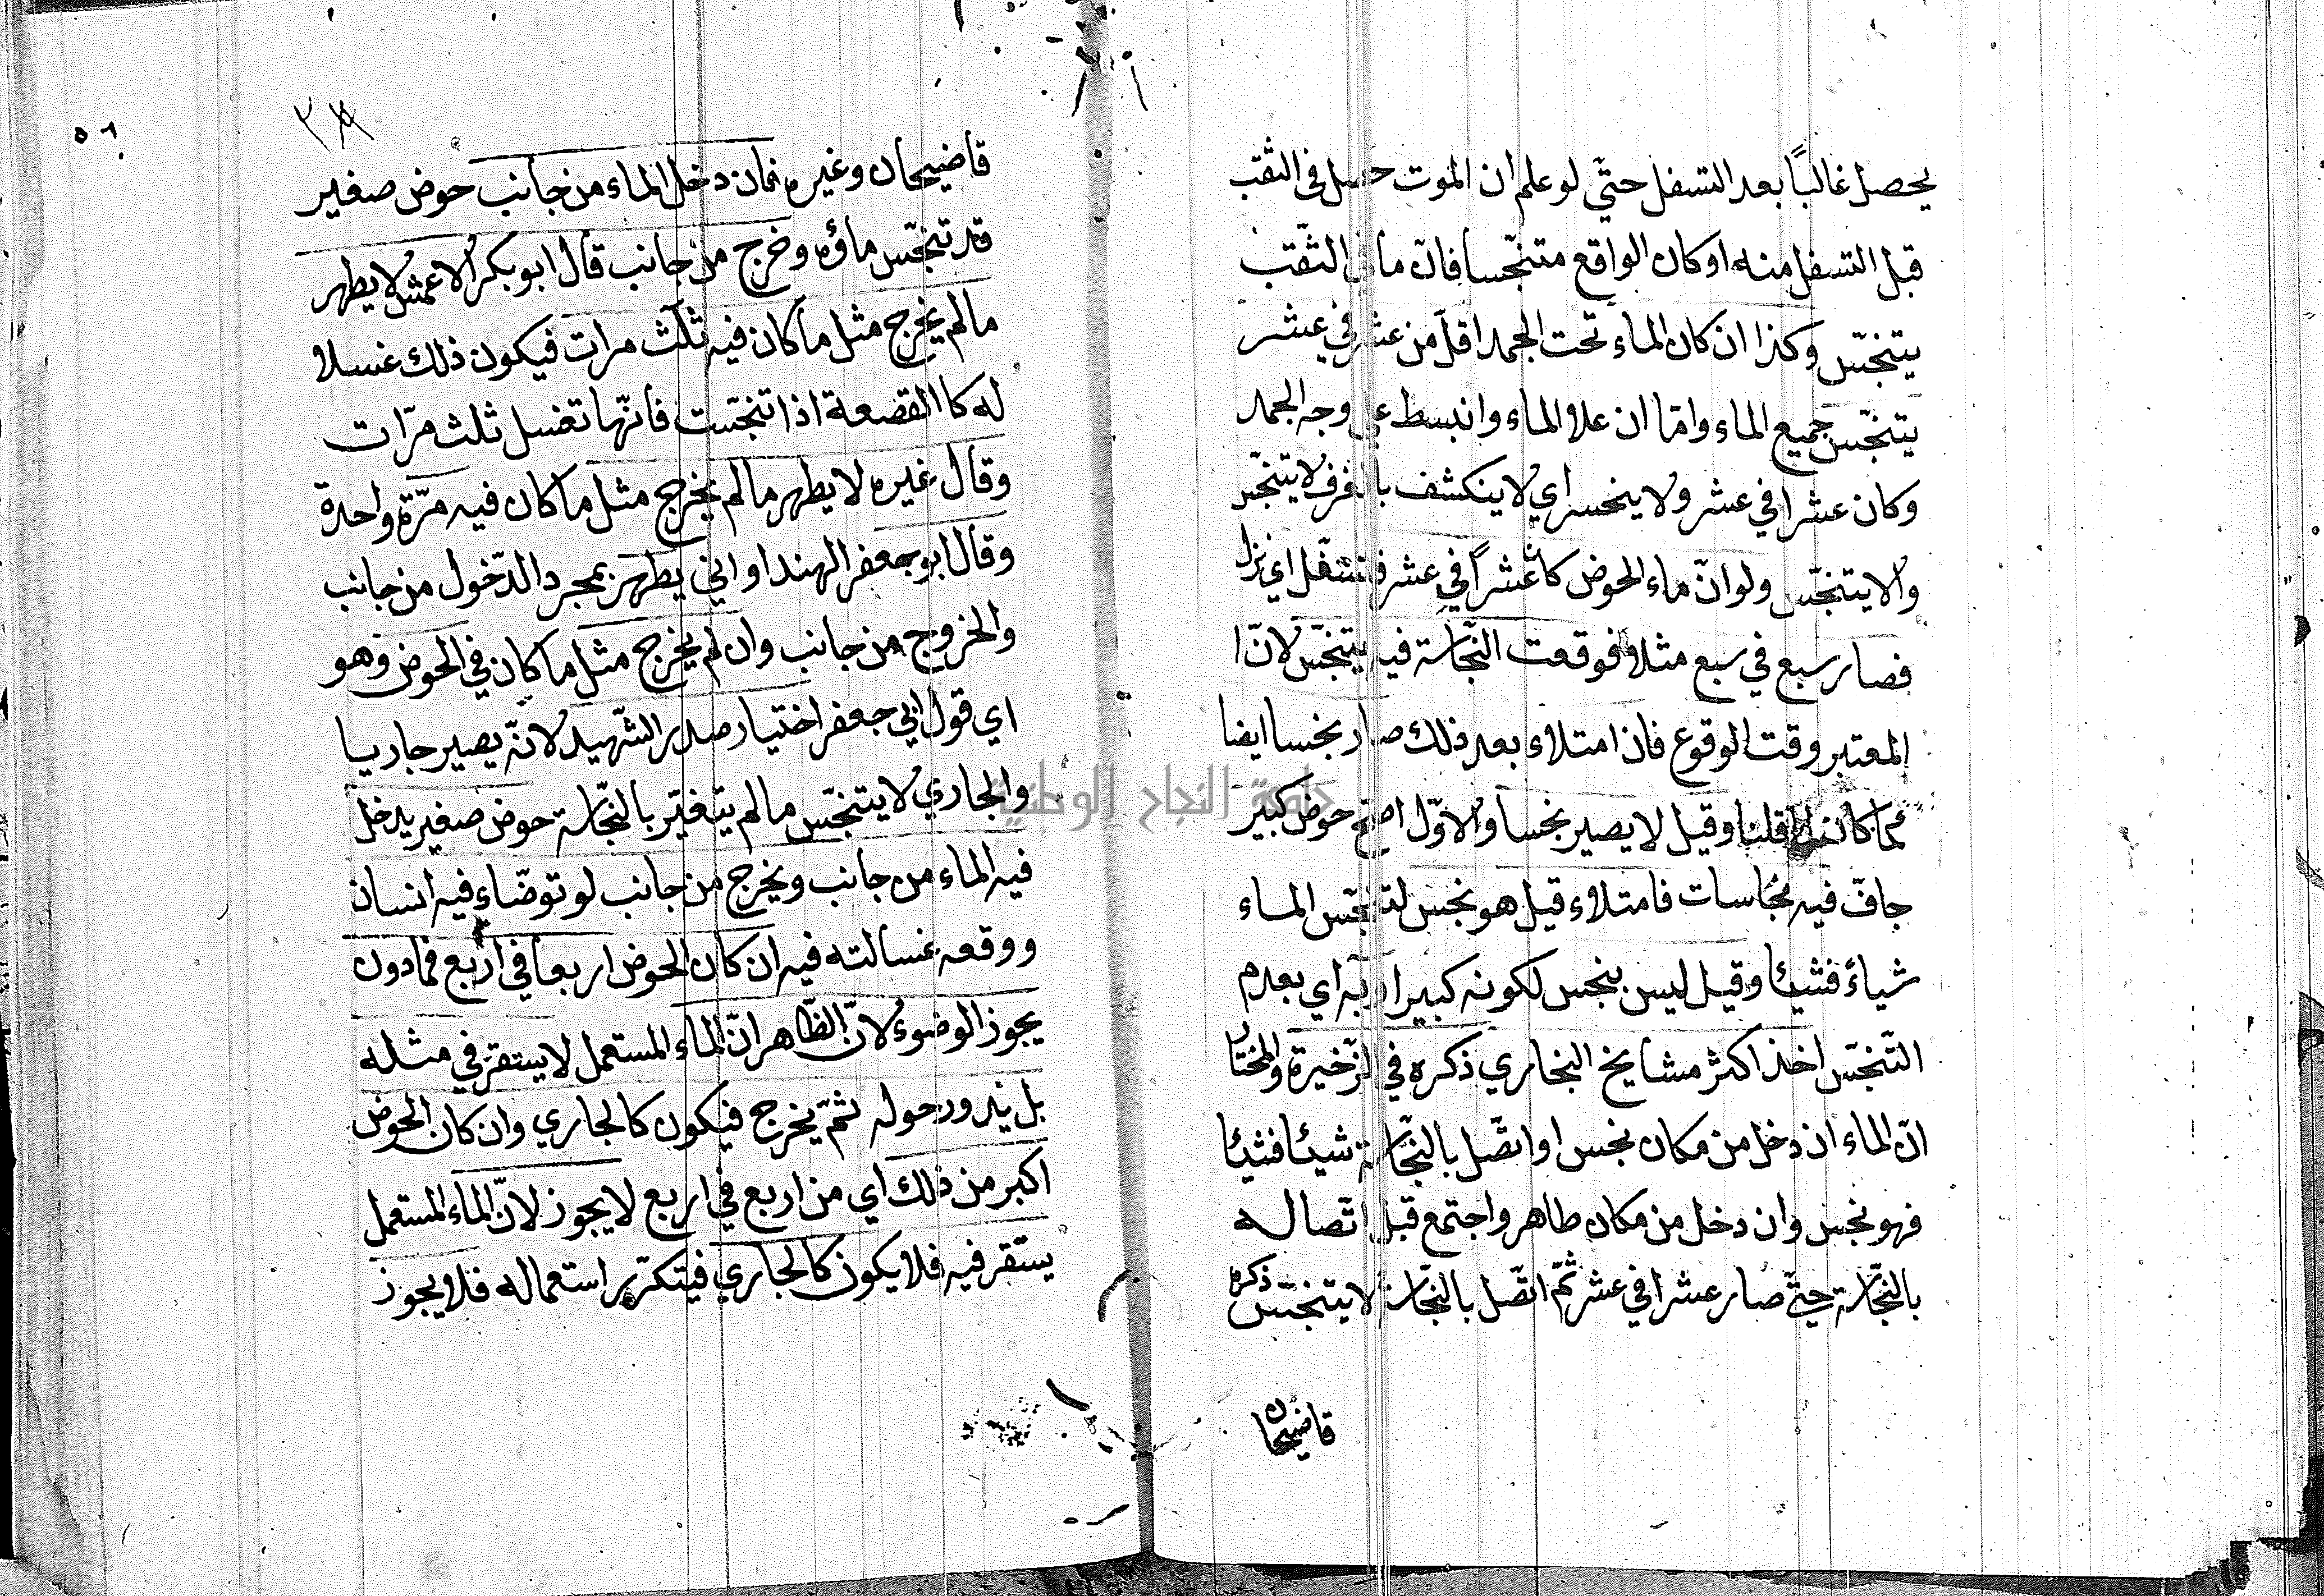 يحصل غالبًا بعد التسفل حتّي لو علم ان الموت حصل في الثقب
قبل التسفل منه او كان الواقع متنجّسا فانّ ما في الثّقب
يتنجّس وكذا ان كان الماء تحت الجمد اقلّ من عشر في عشر
يتنجّس جميع الماء وامّا ان علا الماء وانبسط علي وجه الجمد
وكان عشرا في عشر ولا ينحسر اي لا ينكشف بالغرف لا يتنجّس
والا يتنجّس ولو انّ ماء الحوض كان عشراً في عشر فتسفّل اي نزل
فصار سبع في سبع مثلا فوقعت النّجاسة فيه يتنجّس لانّ
المعتبر وقت الوقوع فان امتلاء بعد ذلك صار نجسا ايضا
كما كان قلنا وقيل لا يصير نجسا والاوّل اصحّ حوض كبير
جافّ فيه نجاسات فامتلاء قيل هو نجس لتنجّس الماء
شياءً فشيئا وقيل ليس بنجس لكونه كبيرا وبه اي بعدم
التّنجّس اخذ اكثر مشايخ البخاري ذكره في الذّخيرة والمختار
انّ الماء ان دخل من مكان نجس او اتّصل بالنّجاسة شيئا فشيئا
فهو نجس وان دخل من مكان طاهر واجتمع قبل اتّصاله
بالنّجاسة حتّي صار عشرا في عشر ثمّ اتّصل بالنّجاسة لا يتنجّس ذكره
قاضيخان
٥٦
قاضيخان وغيره فان دخل الماء من جانب حوض صغير
قد تنجّس ماؤه وخرج من جانب قال ابو بكر الاعمش لا يطهر
ما لم يخرج مثل ما كان فيه ثلث مرات فيكون ذلك غسلا
له كا القصعة اذا تنجّست فانّها تغسل ثلث مرّات
وقال غيره لا يطهر ما لم يخرج مثل ما كان فيه مرّة واحدة
وقال ابو جعفر الهنداواني يطهر بمجرد الدّخول من جانب
والخروج من جانب وان لم يخرج مثل ما كان في الحوض وهو
اي قول ابي جعفر اختيار صدر الشّهيد لانّه يصير جاريا
والجاري لا يتنجّس ما لم يتغيّر بالنّجاسة حوض صغير يدخل
فيه الماء من جانب ويخرج من جانب لو توضّاء فيه انسان
ووقعه غسالته فيه ان كان الحوض اربعا في اربع فمادون
يجوز الوضوء لانّ الظّاهر انّ الماء المستعمل لا يستقرّ في مثله
بل يدور حوله ثمّ يخرج فيكون كالجاري وان كان الحوض
اكبر من ذلك اي من اربع في اربع لا يجوز لانّ الماء المستعمل
يستقر فيه فلا يكون كالجاري فيتكرّر استعماله فلا يجوز
جامعة النجاح الوطنية